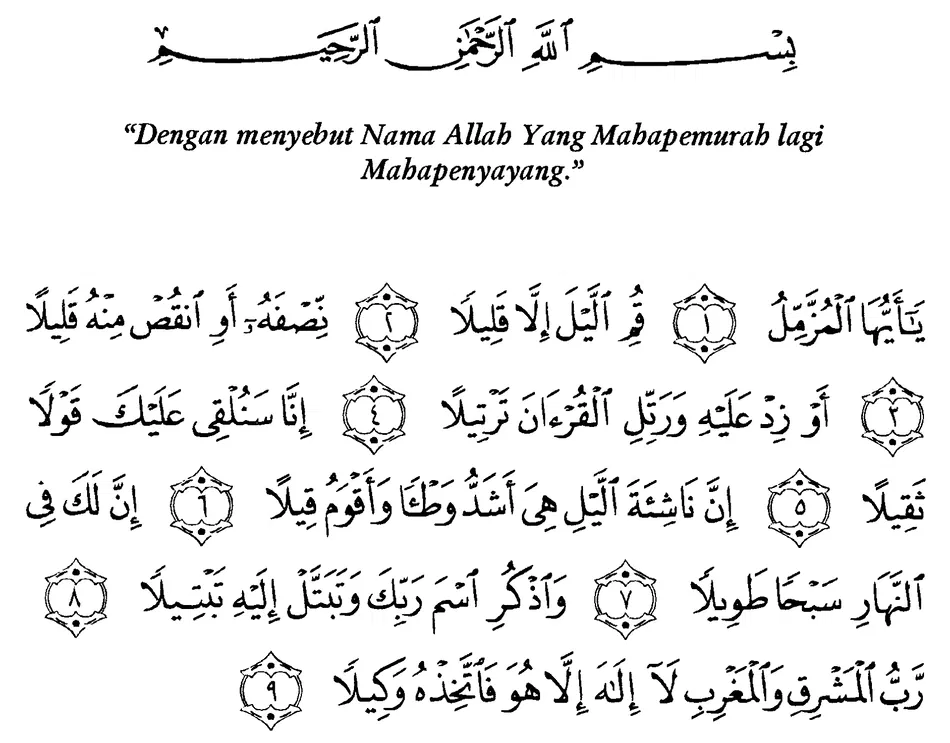 بِسْمِ ٱللَّهِ ٱلرَّحْمَٰنِ ٱلرَّحِيمِ
“Dengan menyebut Nama Allah Yang Mahapemurah lagi
Mahapenyayang.”
يَٰٓأَيُّهَا ٱلْمُزَّمِّلُ ١ قُمِ ٱلَّيْلَ إِلَّا قَلِيلًا ٢ نِّصْفَهُۥٓ أَوِ ٱنقُصْ مِنْهُ قَلِيلًا
٣ أَوْ زِدْ عَلَيْهِ وَرَتِّلِ ٱلْقُرْءَانَ تَرْتِيلًا ٤ إِنَّا سَنُلْقِى عَلَيْكَ قَوْلًا
ثَقِيلًا ٥ إِنَّ نَاشِئَةَ ٱلَّيْلِ هِىَ أَشَدُّ وَطْـًٔا وَأَقْوَمُ قِيلًا ٦ إِنَّ لَكَ فِى
ٱلنَّهَارِ سَبْحًا طَوِيلًا ٧ وَٱذْكُرِ ٱسْمَ رَبِّكَ وَتَبَتَّلْ إِلَيْهِ تَبْتِيلًا ٨
رَّبُّ ٱلْمَشْرِقِ وَٱلْمَغْرِبِ لَآ إِلَٰهَ إِلَّا هُوَ فَٱتَّخِذْهُ وَكِيلًا ٩